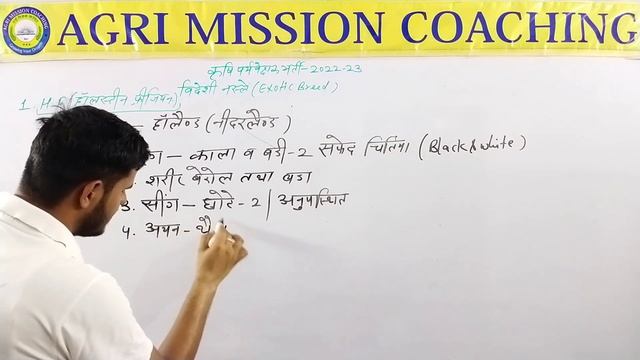 AGRI MISSION COACHING
कृषि पर्यवेक्षक भर्ती - 2022-23
विदेशी नस्ले (Exotic Breed)
1. H.F (हॉलस्टीन फ्रीजियन)
— हॉलैण्ड (नीदरलैण्ड)
— काला व बडी-2 सफेद चित्तियां (Black & white)
शरीर बेरोल तथा बडा
3. सींग — छोटे-2 / अनुपस्थित
4. अयन -